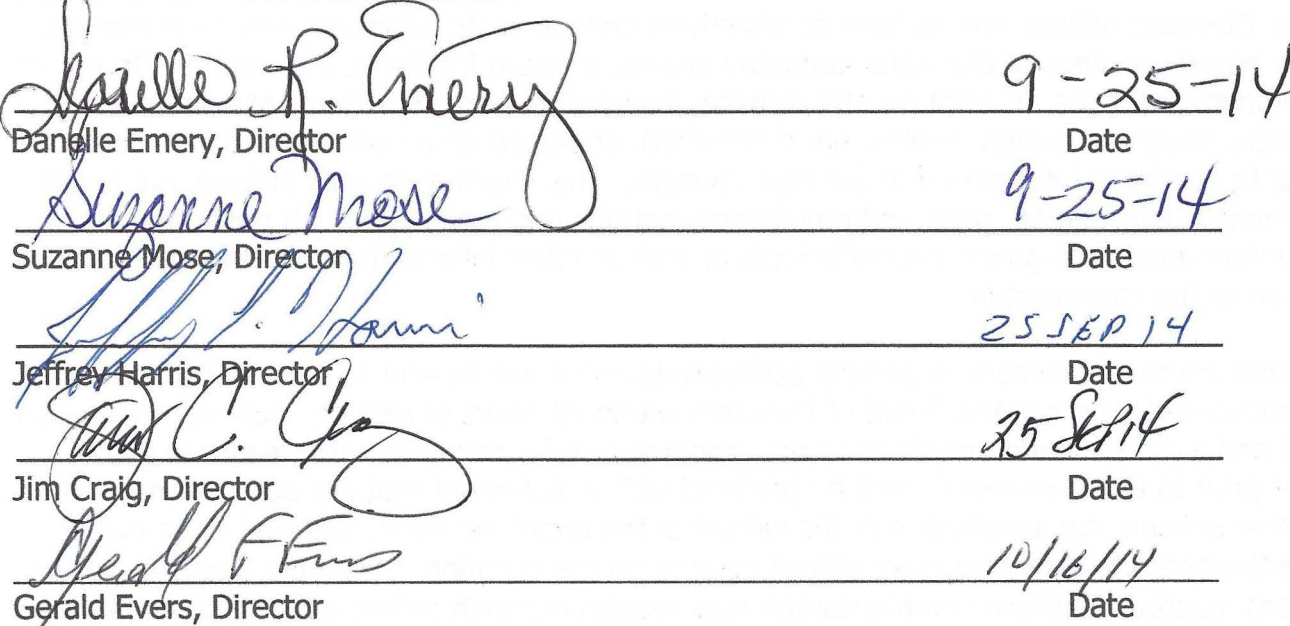 Danelle R. Emery 9-25-14
Danelle Emery, Director Date
Suzanne Mose 9-25-14
Suzanne Mose, Director Date
Jeffrey Harris 25 SEP 14
Jeffrey Harris, Director Date
C. 25 Sep 14
Jim Craig, Director Date
Gerald F 10/16/14
Gerald Evers, Director Date